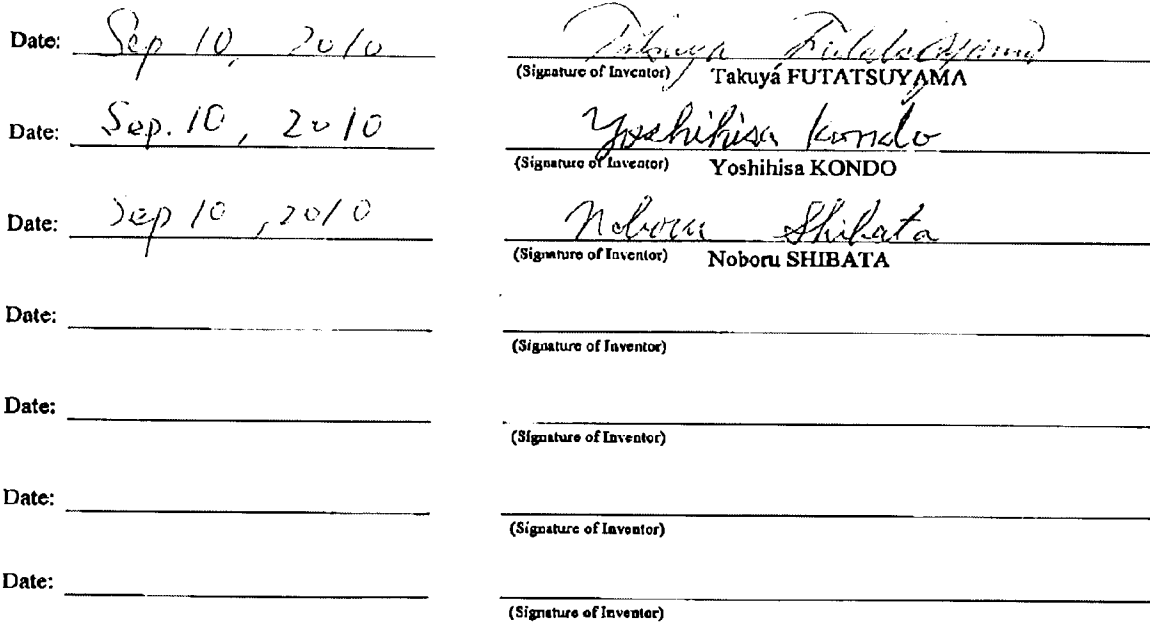 Date: Sep 10, 2010 Takuya Futatsuyama
(Signature of Inventor) Takuya FUTATSUYAMA
Date: Sep. 10, 2010 Yoshihisa Kondo
(Signature of Inventor) Yoshihisa KONDO
Date: Sep 10, 2010 Noboru Shibata
(Signature of Inventor) Noboru SHIBATA
Date:
(Signature of Inventor)
Date:
(Signature of Inventor)
Date:
(Signature of Inventor)
Date:
(Signature of Inventor)